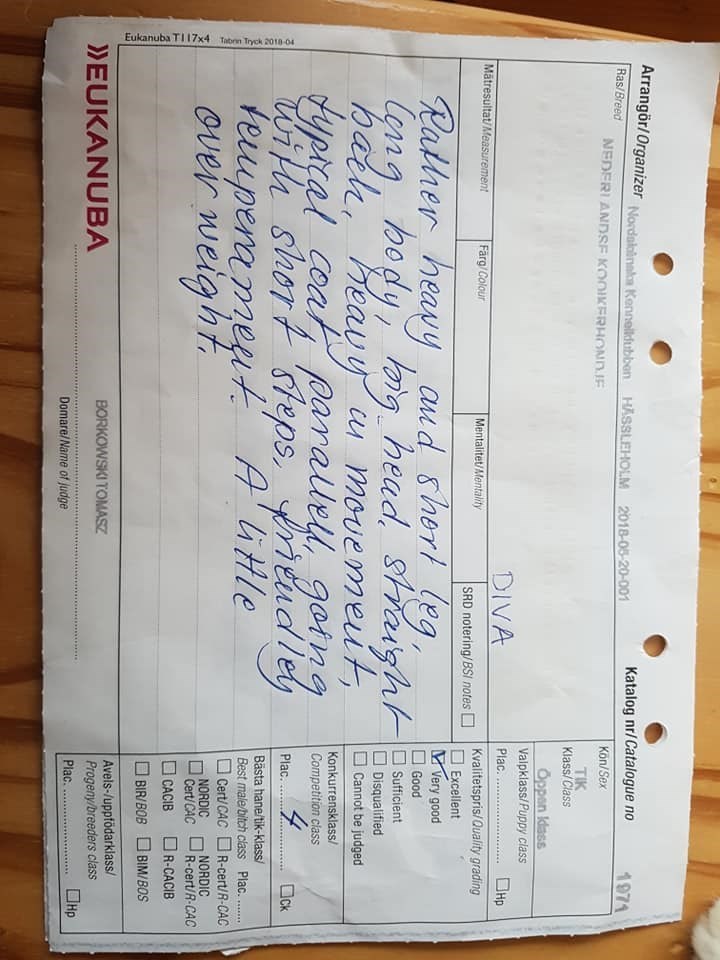 Arrangör/Organizer Nordskånska Kennelklubben HÄSSLEHOLM 2018-06-20-001
Katalog nr/Catalogue no 1971
Ras/Breed NEDERLANDSE KOOIKERHONDJE
Kön/Sex TIK
Klass/Class Öppen klass
DIVA
Valpklass/Puppy class
Plac. .......... Hp
Mätresultat/Measurement
Färg/Colour
Mentalitet/Mentality
SRD notering/BSI notes
Rather heavy and short leg,
long body, big head, straight
back, heavy in movement,
typical coat, parallell, going
with short steps, friendley
temperament. A little
over weight.
Kvalitetspris/Quality grading
Excellent
Very good
Good
Sufficient
Disqualified
Cannot be judged
Konkurrensklass/
Competition class
Plac. 4 Ck
Bästa hane/tik-klass/
Best male/bitch class Plac. .......
Cert/CAC R-cert/R-CAC
NORDIC Cert/CAC NORDIC R-cert/R-CAC
CACIB R-CACIB
BIR/BOB BIM/BOS
Avels-/uppfödarklass/
Progeny/breeders class
Plac. .......... Hp
BORKOWSKI TOMASZ
Domare/Name of judge
EUKANUBA
Eukanuba T117x4 Tabrin Tryck 2018-04